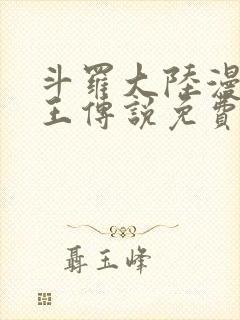 斗羅大陸漫
王傳說免費
聶玉峰